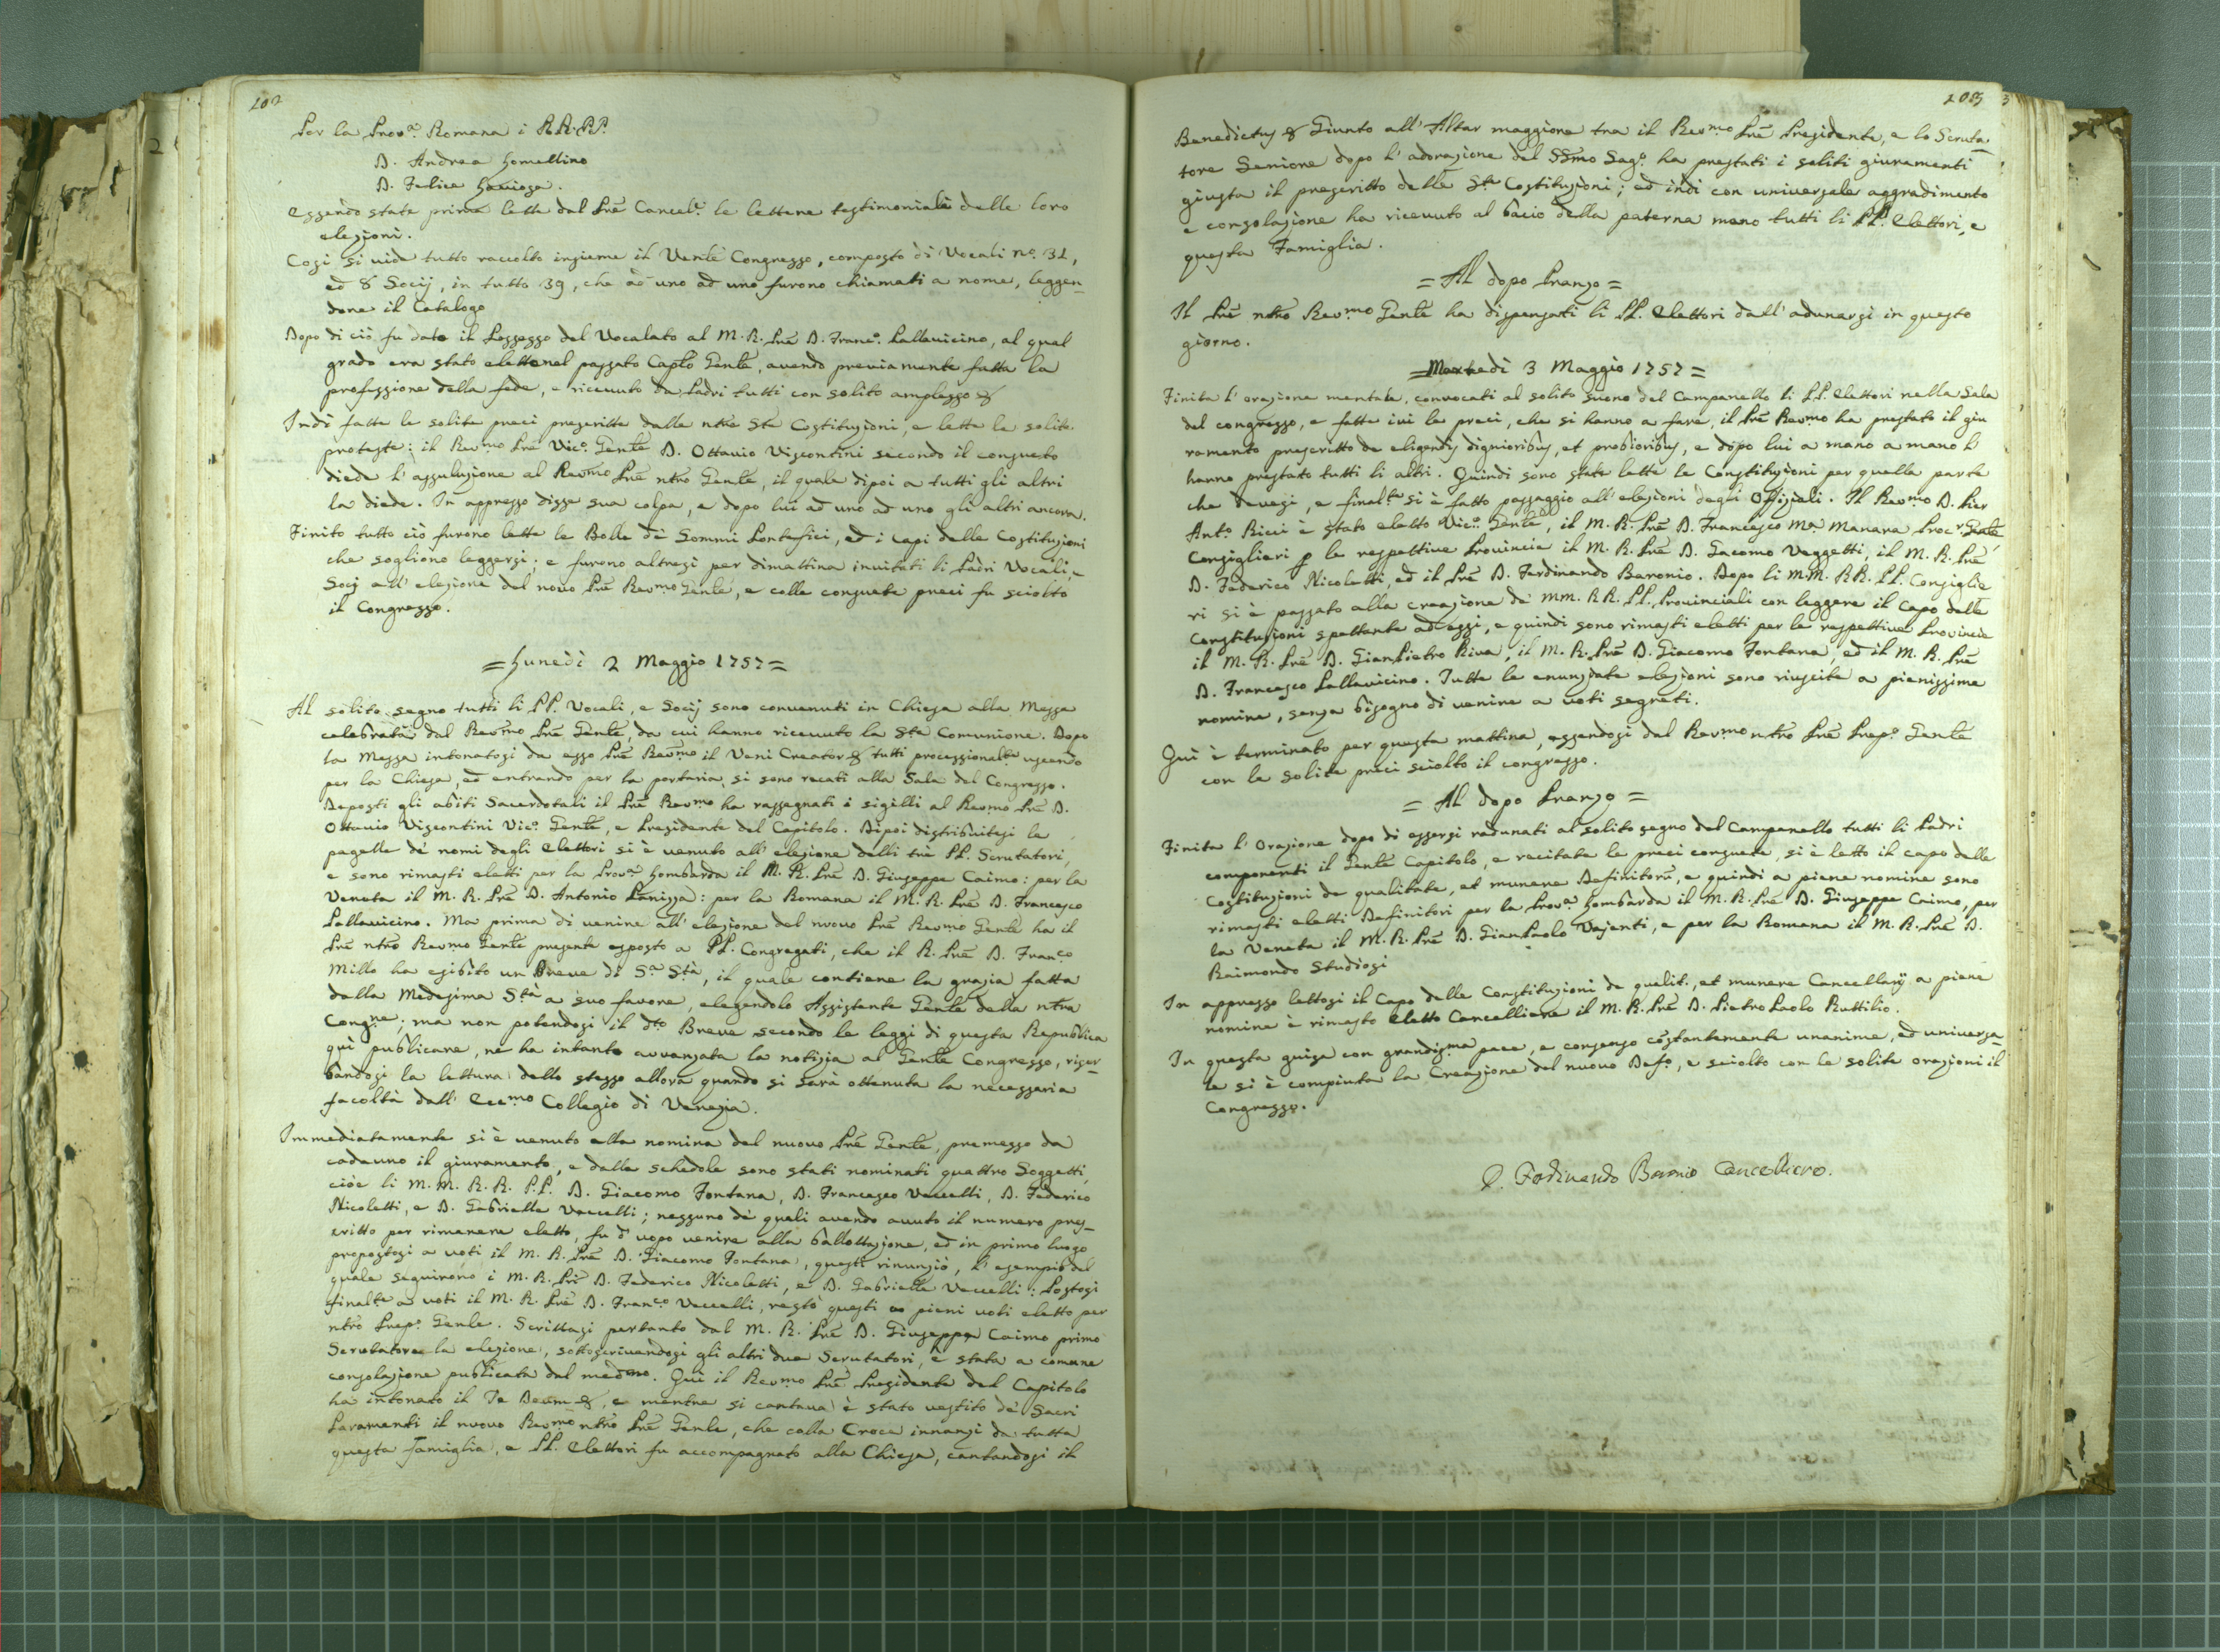 202
Per la Prov.ª Romana i R.R. P.P.
D. Andrea Lomellino
D. Felice Laviosa.
Essendo state prima lette dal Prē Cancel.e le lettere testimoniali delle loro
elezioni.
Così si vide tutto raccolto insieme il Venle Congresso, composto di Vocali n.º 31,
ed 8 Socij, in tutto 39, che ad uno ad uno furono chiamati a nome, leggen-
done il Catalogo
Dopo di ciò fu dato il Possesso del Vocalato al M. R. Prē D. Franc.º Pallavicino, al qual
grado era stato eletto nel passato Caplo Genle, avendo previamente fatta la
professione della fede, e ricevuto da Padri tutti con solito amplesso &
Indi fatte le solite preci prescritte dalle ntrē Ste Costituzioni, e lette le solite
proteste: il Revmo Prē Vic.º Genle D. Ottavio Viscontini secondo il consueto
diede l'assoluzione al Revmo Prē ntro Genle, il quale dipoi a tutti gli altri
la diede. In appresso disse sua colpa, e dopo lui ad uno ad uno gli altri ancora.
Finito tutto ciò furono lette le Bolle dè Sommi Pontefici, ed i Capi delle Costituzioni
che sogliono leggersi; e furono altresì per dimattina invitati li Padri Vocali, e
Socj all'elezione del novo Prē Revmo Genle, e colle consuete preci fu sciolto
il Congresso.
= Lunedì 2 Maggio 1757 =
Al solito segno tutti li PP. Vocali, e Socij sono convenuti in Chiesa alla Messa
celebrata dal Revmo Prē Genle, da cui hanno ricevuto la Sta Comunione. Dopo
la Messa intonatosi da esso Prē Revmo il Veni Creator & tutti processionalte uscendo
per la Chiesa, ed entrando per la portaria, si sono recati alla Sala del Congresso.
Deposti gli abiti Sacerdotali il Prē Revmo ha rassegnati i sigilli al Revmo Prē D.
Ottavio Viscontini Vic.º Genle, e Presidente del Capitolo. Dipoi distribuitesi le
pagelle dè nomi degli Elettori si è venuto all'elezione delli trè PP. Scrutatori,
e sono rimasti eletti per la Prov.ª Lombarda il M. R. Prē D. Giuseppe Caimo: per la
Veneta il M. R. Prē D. Antonio Panizza: per la Romana il M. R. Prē D. Francesco
Pallavicino. Ma prima di venire all'elezione del nuovo Prē Revmo Genle ha il
Prē ntro Revmo Genle presente esposto a PP. Congregati, che il R. Prē D. Franco
Millo ha esibito un Breve di S.ª Stà, il quale contiene la grazia fatta
dalla Medesima Stà a suo favore, elegendolo Assistente Genle della ntra
Congne; ma non potendosi il dto Breve secondo le leggi di questa Republica
quì publicare, nè ha intanto avvanzata la notizia al Genle Congresso, riser-
bandosi la lettura dello stesso allora quando si sarà ottenuta la necessaria
facoltà dall' Eccmo Collegio di Venezia.
Immediatamente si è venuto alla nomina del nuovo Prē Genle, premesso da
cadauno il giuramento, e dalle schedole sono stati nominati quattro Soggetti,
cioè li M. M. R. R. P.P. D. Giacomo Fontana, D. Francesco Vecelli, D. Federico
Nicoletti, e D. Gabrielle Vecelli; nessuno dè quali avendo avuto il numero pres-
critto per rimanere eletto, fu d'uopo venire alla ballottazione, ed in primo luogo
propostosi a voti il M. R. Prē D. Giacomo Fontana, questi rinunziò, l'esempio del
quale seguirono i M. R. Pri D. Federico Nicoletti, e D. Gabrielle Vecelli: Postosi
finalte a voti il M. R. Prē D. Franco Vecelli, restò questi a pieni voti eletto per
ntro Prep.º Genle. Scrittasi pertanto dal M. R. Prē D. Giuseppe Caimo primo
Scrutatore la elezione, sottoscrivendosi gli altri due Scrutatori, è stata a comune
consolazione publicata dal medmo. Quì il Revmo Prē Presidente del Capitolo
ha intonato il Te Deum &, e mentre si cantava è stato vestito dè Sacri
Paramenti il nuovo Revmo ntro Prē Genle, che colla Croce innanzi da tutta
questa Famiglia, e PP. Elettori fu accompagnato alla Chiesa, cantandosi il
203
Benedictus & Giunto all'Altar maggiore tra il Revmo Prē Presidente, e lo Scruta-
tore Seniore dopo l'adorazione del SSmo Sag.º ha prestati i soliti giuramenti
giusta il prescritto delle Ste Costituzioni; ed indi con universale aggradimento
e consolazione ha ricevuto al bacio della paterna mano tutti li PP. Elettori, e
questa Famiglia.
= Al dopo Pranzo =
Il Prē ntro Revmo Genle ha dispensati li PP. Elettori dall'adunarsi in questo
giorno.
= Martedì 3 Maggio 1757 =
Finita l'orazione mentale, convocati al solito suono del Campanello li PP. Elettori nella Sala
del congresso, e fatte ivi le preci, che si hanno a fare, il Prē Revmo ha prestato il giu
ramento prescritto de eligendis dignioribus, et probioribus, e dopo lui a mano a mano l'
hanno prestato tutti li altri. Quindi sono state lette le Constituzioni per quella parte
che devesi, e finalte si è fatto passaggio all'elezioni degli Offiziali. Il Revmo D. Pier
Ant.º Ricci è stato eletto Vic.º Genle, il M. R. Prē D. Francesco Mª Manara Procr Genle
Consiglieri p le respettive Provincie il M. R. Prē D. Giacomo Veggetti, il M. R. Prē
D. Federico Nicoletti, ed il Prē D. Ferdinando Baronio. Dopo li M.M. RR. PP. Consiglie
ri si è passato alla creazione de MM. RR. PP. Provinciali con leggere il Capo delle
Constituzioni spettante ad essi, e quindi sono rimasti eletti per le respettive Provincie
il M. R. Prē D. GianPietro Riva, il M. R. Prē D. Giacomo Fontana, ed il M. R. Prē
D. Francesco Pallavicino. Tutte le enunziate elezioni sono riuscite a pienissime
nomine, senza bisogno di venire a voti segreti.
Quì è terminato per questa mattina, essendosi dal Revmo ntro Prē Prep.º Genle
con le solite preci sciolto il congresso.
= Al dopo Pranzo =
Finita l'Orazione dopo di essersi radunati al solito segno del Campanello tutti li Padri
componenti il Genle Capitolo, e recitate le preci consuete, si è letto il capo delle
Costituzioni de qualitate, et munere Definitorū, e quindi a piene nomine sono
rimasti eletti Definitori per la Prov.ª Lombarda il M. R. Prē D. Giuseppe Caimo, per
la Veneta il M. R. Prē D. GianPaolo Vajenti, e per la Romana il M. R. Prē D.
Raimondo Studiosi
In appresso lettosi il Capo delle Constituzioni de qualit., et munere Cancellarij a piene
nomine è rimasto eletto Cancelliere il M. R. Prē D. Pietro Paolo Ruttilio.
In questa guisa con grandisma pace, e consenso cōstantemente unanime, ed universa-
le si è compiuta la Creazione del nuovo Def.º, e sciolto con le solite orazioni il
Congresso.
D. Ferdinando Baronio Cancelliero.